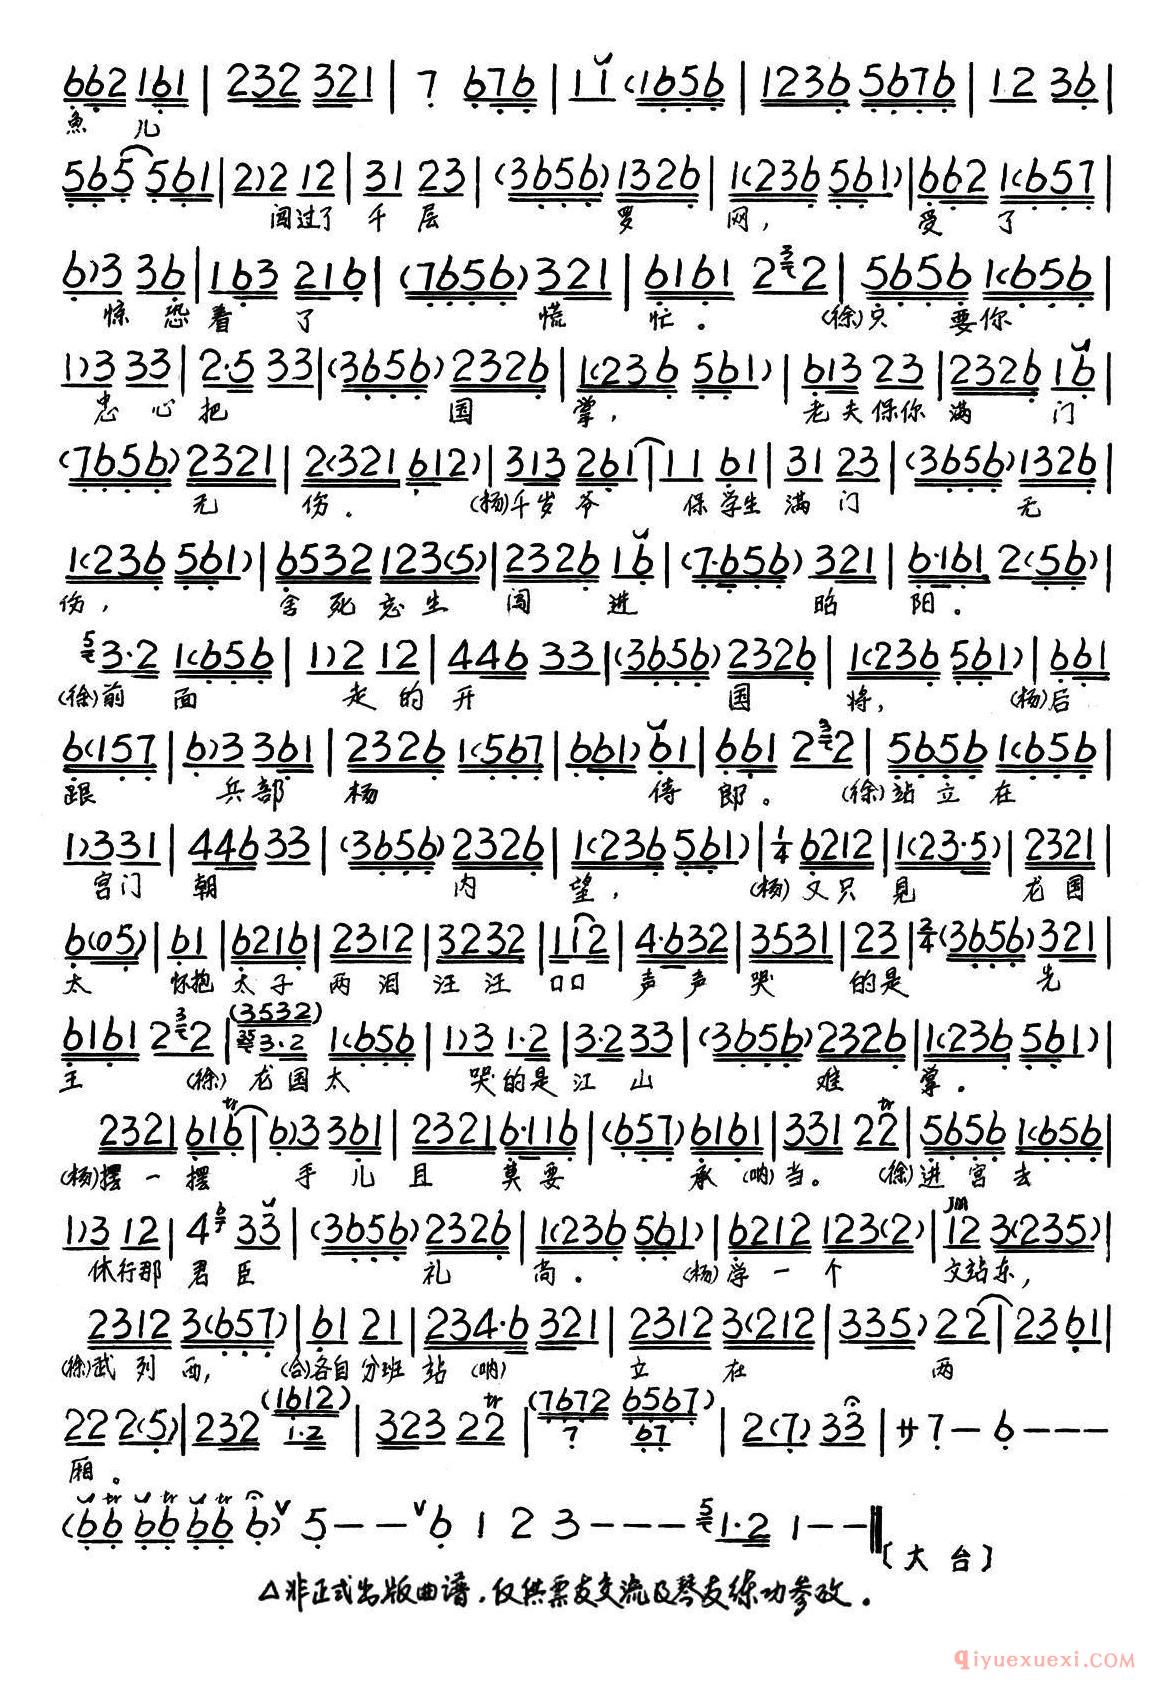 662 161 | 232 321 | 7 676 | 1 1 (1656 | 1236 5676 | 1·2 36 |
鱼 儿
565 561 | 2)2 12 | 31 23 | (3656) 1326 | 1(236 561) | 662 1(657
闯过了 千 层 罗 网, 受 了
6)3 36 | 163 216 | (7656) 321 | 6161 2 3 2 | 5656 1(656
惊 恐 着 了 慌 忙。 (徐)只 要你
1)3 33 | 2·5 33 | (3656) 2326 | 1(236 561) | 613 23 | 2326 16
忠 心 把 国 掌, 老夫保你 满 门
(7656) 2321 | 2(321 612) | 313 261 | 11 61 | 31 23 | (3656) 1326
无 伤。 (杨)千岁爷 保学生 满门 无
1(236 561) | 6532 123(5) | 2326 16 | (7·656) 321 | 6·161 2(56)
伤, 舍 死 忘 生 闯 进 昭 阳。
5 3·2 1(656 | 1)2 12 | 446 33 | (3656) 2326 | 1(236 561) | 661
(徐)前 面 走 的 开 国 将, (杨)后
6(157 | 6)3 361 | 2326 1(567 | 661) 61 | 661 2 3 2 | 5656 1(656
跟 兵部 杨 侍 郎。 (徐)站 立 在
1)331 | 446 33 | (3656) 2326 | 1(236 561) | 1/4 6212 | 1(23·5) | 2321
宫门 朝 内 望, (杨) 又只 見 龙国
6(05) | 61 | 6216 | 2312 | 3232 | 112 | 4·632 | 3531 | 23 | 2/4 (3656) 321
太 怀抱 太 子 两 泪 汪 汪 口口 声 声 哭 的是 先
(3532)
6161 2 3 2 | 3·2 1(656 | 1)3 1·2 | 3·2 33 | (3656) 2326 | 1(236 561)
王 (徐) 龙 国 太 哭的是 江 山 难 掌。
2321 616 | 6)3 361 | 2321 6·116 | (657) 6161 | 331 22 | 5656 1(656
(杨)摆 一 摆 手 儿 且 莫 要 承 (呐)当。 (徐)进 宫 去
1)3 12 | 4 6 33 | (3656) 2326 | 1(236 561) | 6212 123(2) | 12 3(235)
休行那 君 臣 礼 尚。 (杨)学 一 个 文站东,
2312 3(657) | 61 21 | 234·6 321 | 2312 3(212 | 335) 22 | 23 61
(徐)武 列 西, (合)各自 分班 站 (呐) 立 在 两
(1612) (7672 6567)
222(5) | 232 1·2 | 323 22 | 7 67 | 2(7) 33 | サ 7— 6———
厢。
(66 66 66 6) 5—— 6 1 2 3——— 5 1·2 1——
〔大 台〕
△非正式出版曲谱,仅供票友交流及琴友练功参改。
qiyuexuexi.COM